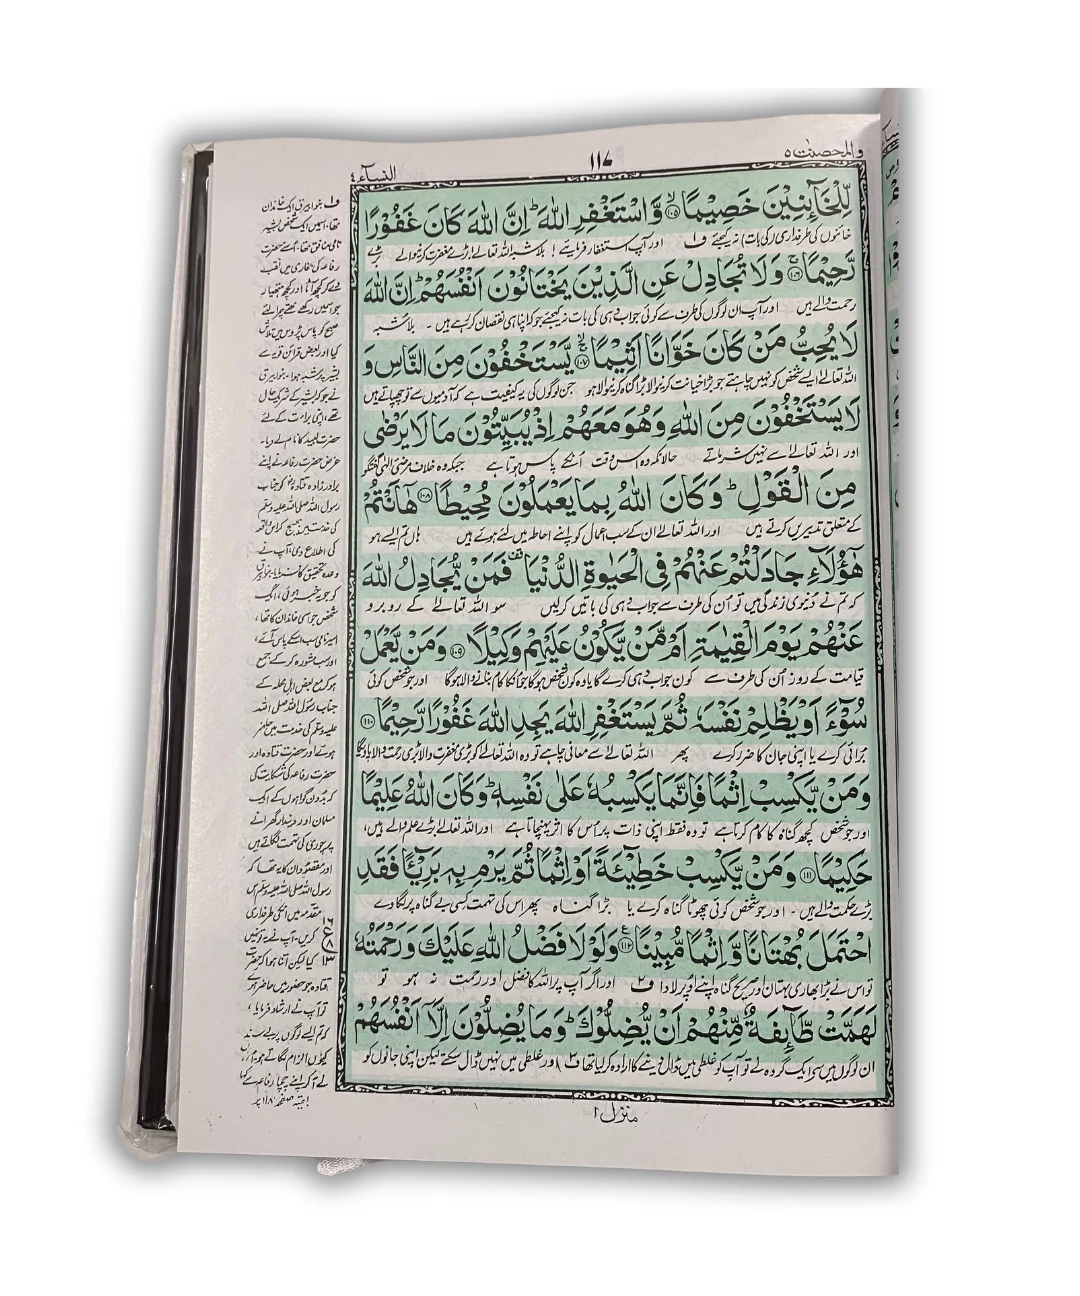 والمحصنت ۵
۱۱۷
النسآء ۴
لِّلْخَآئِنِيْنَ خَصِيْمًا ۙ﴿۱۰۵﴾ وَّاسْتَغْفِرِ اللّٰهَ ؕ اِنَّ اللّٰهَ كَانَ غَفُوْرًا
خائنوں کی طرفداری کی بات نہ کیجئے ف۱ اور آپ استغفار فرمائیے ! بلاشبہ اللہ تعالےٰ بڑے مغفرت کرنیوالے بڑے
رَّحِيْمًا ۚ﴿۱۰۶﴾ وَلَا تُجَادِلْ عَنِ الَّذِيْنَ يَخْتَانُوْنَ اَنْفُسَهُمْ ؕ اِنَّ اللّٰهَ
رحمت والے ہیں اور آپ ان لوگوں کی طرف سے کوئی جواب دہی کی بات نہ کیجئے جو کہ اپنا ہی نقصان کر رہے ہیں ۔ بلاشبہ
لَا يُحِبُّ مَنْ كَانَ خَوَّانًا اَثِيْمًا ۚۙ﴿۱۰۷﴾ يَّسْتَخْفُوْنَ مِنَ النَّاسِ وَ
اللہ تعالےٰ ایسے شخص کو نہیں چاہتے جو بڑا خیانت کرنیوالا بڑا گناہ کرنیوالا ہو جن لوگوں کی یہ کیفیت ہے کہ آدمیوں سے تو چھپاتے ہیں
لَا يَسْتَخْفُوْنَ مِنَ اللّٰهِ وَهُوَ مَعَهُمْ اِذْ يُبَيِّتُوْنَ مَا لَا يَرْضٰى
اور اللہ تعالےٰ سے نہیں شرماتے حالانکہ وہ اس وقت اُنکے پاس ہوتا ہے جبکہ وہ خلاف مرضی الٰہی گفتگو
مِنَ الْقَوْلِ ؕ وَكَانَ اللّٰهُ بِمَا يَعْمَلُوْنَ مُحِيْطًا ﴿۱۰۸﴾ هٰٓاَنْتُمْ
کے متعلق تدبیریں کرتے ہیں اور اللہ تعالےٰ ان کے سب اعمال کو اپنے احاطہ میں لئے ہوئے ہیں ہاں تم ایسے ہو
هٰٓؤُلَآءِ جَادَلْتُمْ عَنْهُمْ فِى الْحَيٰوةِ الدُّنْيَا ۫ فَمَنْ يُّجَادِلُ اللّٰهَ
کہ تم نے دُنیوی زندگی میں تو اُن کی طرف سے جواب دہی کی باتیں کرلیں سو اللہ تعالےٰ کے روبرو
عَنْهُمْ يَوْمَ الْقِيٰمَةِ اَمْ مَّنْ يَّكُوْنُ عَلَيْهِمْ وَكِيْلًا ﴿۱۰۹﴾ وَمَنْ يَّعْمَلْ
قیامت کے روز اُن کی طرف سے کون جواب دہی کرے گا یا وہ کون شخص ہوگا جو اُنکا کام بنانے والا ہوگا اور جو شخص کوئی
سُوْٓءًا اَوْ يَظْلِمْ نَفْسَهٗ ثُمَّ يَسْتَغْفِرِ اللّٰهَ يَجِدِ اللّٰهَ غَفُوْرًا رَّحِيْمًا ﴿۱۱۰﴾
بُرائی کرے یا اپنی جان کا ضرر کرے پھر اللہ تعالےٰ سے معافی چاہے تو وہ اللہ تعالےٰ کو بڑی مغفرت والا بڑی رحمت والا پاوے گا
وَمَنْ يَّكْسِبْ اِثْمًا فَاِنَّمَا يَكْسِبُهٗ عَلٰى نَفْسِهٖ ؕ وَكَانَ اللّٰهُ عَلِيْمًا
اور جو شخص کچھ گناہ کا کام کرتا ہے تو وہ فقط اپنی ذات پر اس کا اثر پہنچاتا ہے اور اللہ تعالےٰ بڑے علم والے ہیں،
حَكِيْمًا ﴿۱۱۱﴾ وَمَنْ يَّكْسِبْ خَطِيْٓئَةً اَوْ اِثْمًا ثُمَّ يَرْمِ بِهٖ بَرِيْٓئًا فَقَدِ
بڑے حکمت والے ہیں ۔ اور جو شخص کوئی چھوٹا گناہ کرے یا بڑا گناہ پھر اس کی تہمت کسی بے گناہ پر لگا دے
احْتَمَلَ بُهْتَانًا وَّاِثْمًا مُّبِيْنًا ﴿۱۱۲﴾ وَلَوْلَا فَضْلُ اللّٰهِ عَلَيْكَ وَرَحْمَتُهٗ
تو اس نے بڑا بھاری بہتان اور صریح گناہ اپنے اُوپر لادا ف۲ اور اگر آپ پر اللہ کا فضل اور رحمت نہ ہو تو
لَهَمَّتْ طَّآئِفَةٌ مِّنْهُمْ اَنْ يُّضِلُّوْكَ ؕ وَمَا يُضِلُّوْنَ اِلَّآ اَنْفُسَهُمْ
ان لوگوں میں سے ایک گروہ نے تو آپ کو غلطی میں ڈال دینے کا ارادہ کر لیا تھا ف۳ اور غلطی میں نہیں ڈال سکتے لیکن اپنی جانوں کو
منزل ۱
ف۱ بنوابیرق ایک خاندان
تھا، اسمیں ایک شخص بشیر
نامی منافق تھا، اُسنے حضرت
رفاعہ کی بخاری میں نقب
دے کر کچھ آٹا اور کچھ ہتھیار
جو اسمیں رکھے تھے چرا لئے
صبح کو پاس پڑوس میں تلاش
کیا اور بعض قرائن قویہ سے
بشیر پر شبہ ہوا، بنوابیرق
نے جو کہ بشیر کے شریک حال
تھے، اپنی برات کے لئے
حضرت لبید کا نام لے دیا۔
غرض حضرت رفاعہ نے اپنے
برادرزادہ قتادہ کو جناب
رسول اللہ صلی اللہ علیہ وسلم
کی خدمت میں بھیج کر اس واقعہ
کی اطلاع دی، آپ نے
وعدہ تحقیق کا فرمایا، بنوابیرق
کو جو یہ خبر ہوئی، ایک
شخص جو اسی خاندان کا تھا،
اسیر نامی سب اسکے پاس آئے،
اور سب مشورہ کر کے جمع
ہو کر مع بعض اہل محلہ کے
جناب رسول اللہ صلی اللہ
علیہ وسلم کی خدمت میں حاضر
ہوئے اور حضرت قتادہ اور
حضرت رفاعہ کی شکایت کی
کہ بدون گواہوں کے ایک
مسلمان اور دیندار گھرانے
پر چوری کی تہمت لگاتے ہیں
اور مقصود ان کا یہ تھا کہ
رسول اللہ صلی اللہ علیہ وسلم اس
مقدمہ میں انکی طرفداری
کریں، آپ نے یہ تو نہیں
کیا لیکن اتنا ہوا کہ حضرت
قتادہ جو حضور میں حاضر ہوئے
تو آپ نے ارشاد فرمایا،
کہ تم ایسے لوگوں پر بے سند
کیوں الزام لگاتے ہو، انہوں
نے آکر اپنے چچا رفاعہ سے کہا
بقیہ صفحہ ۱۱۸ پر